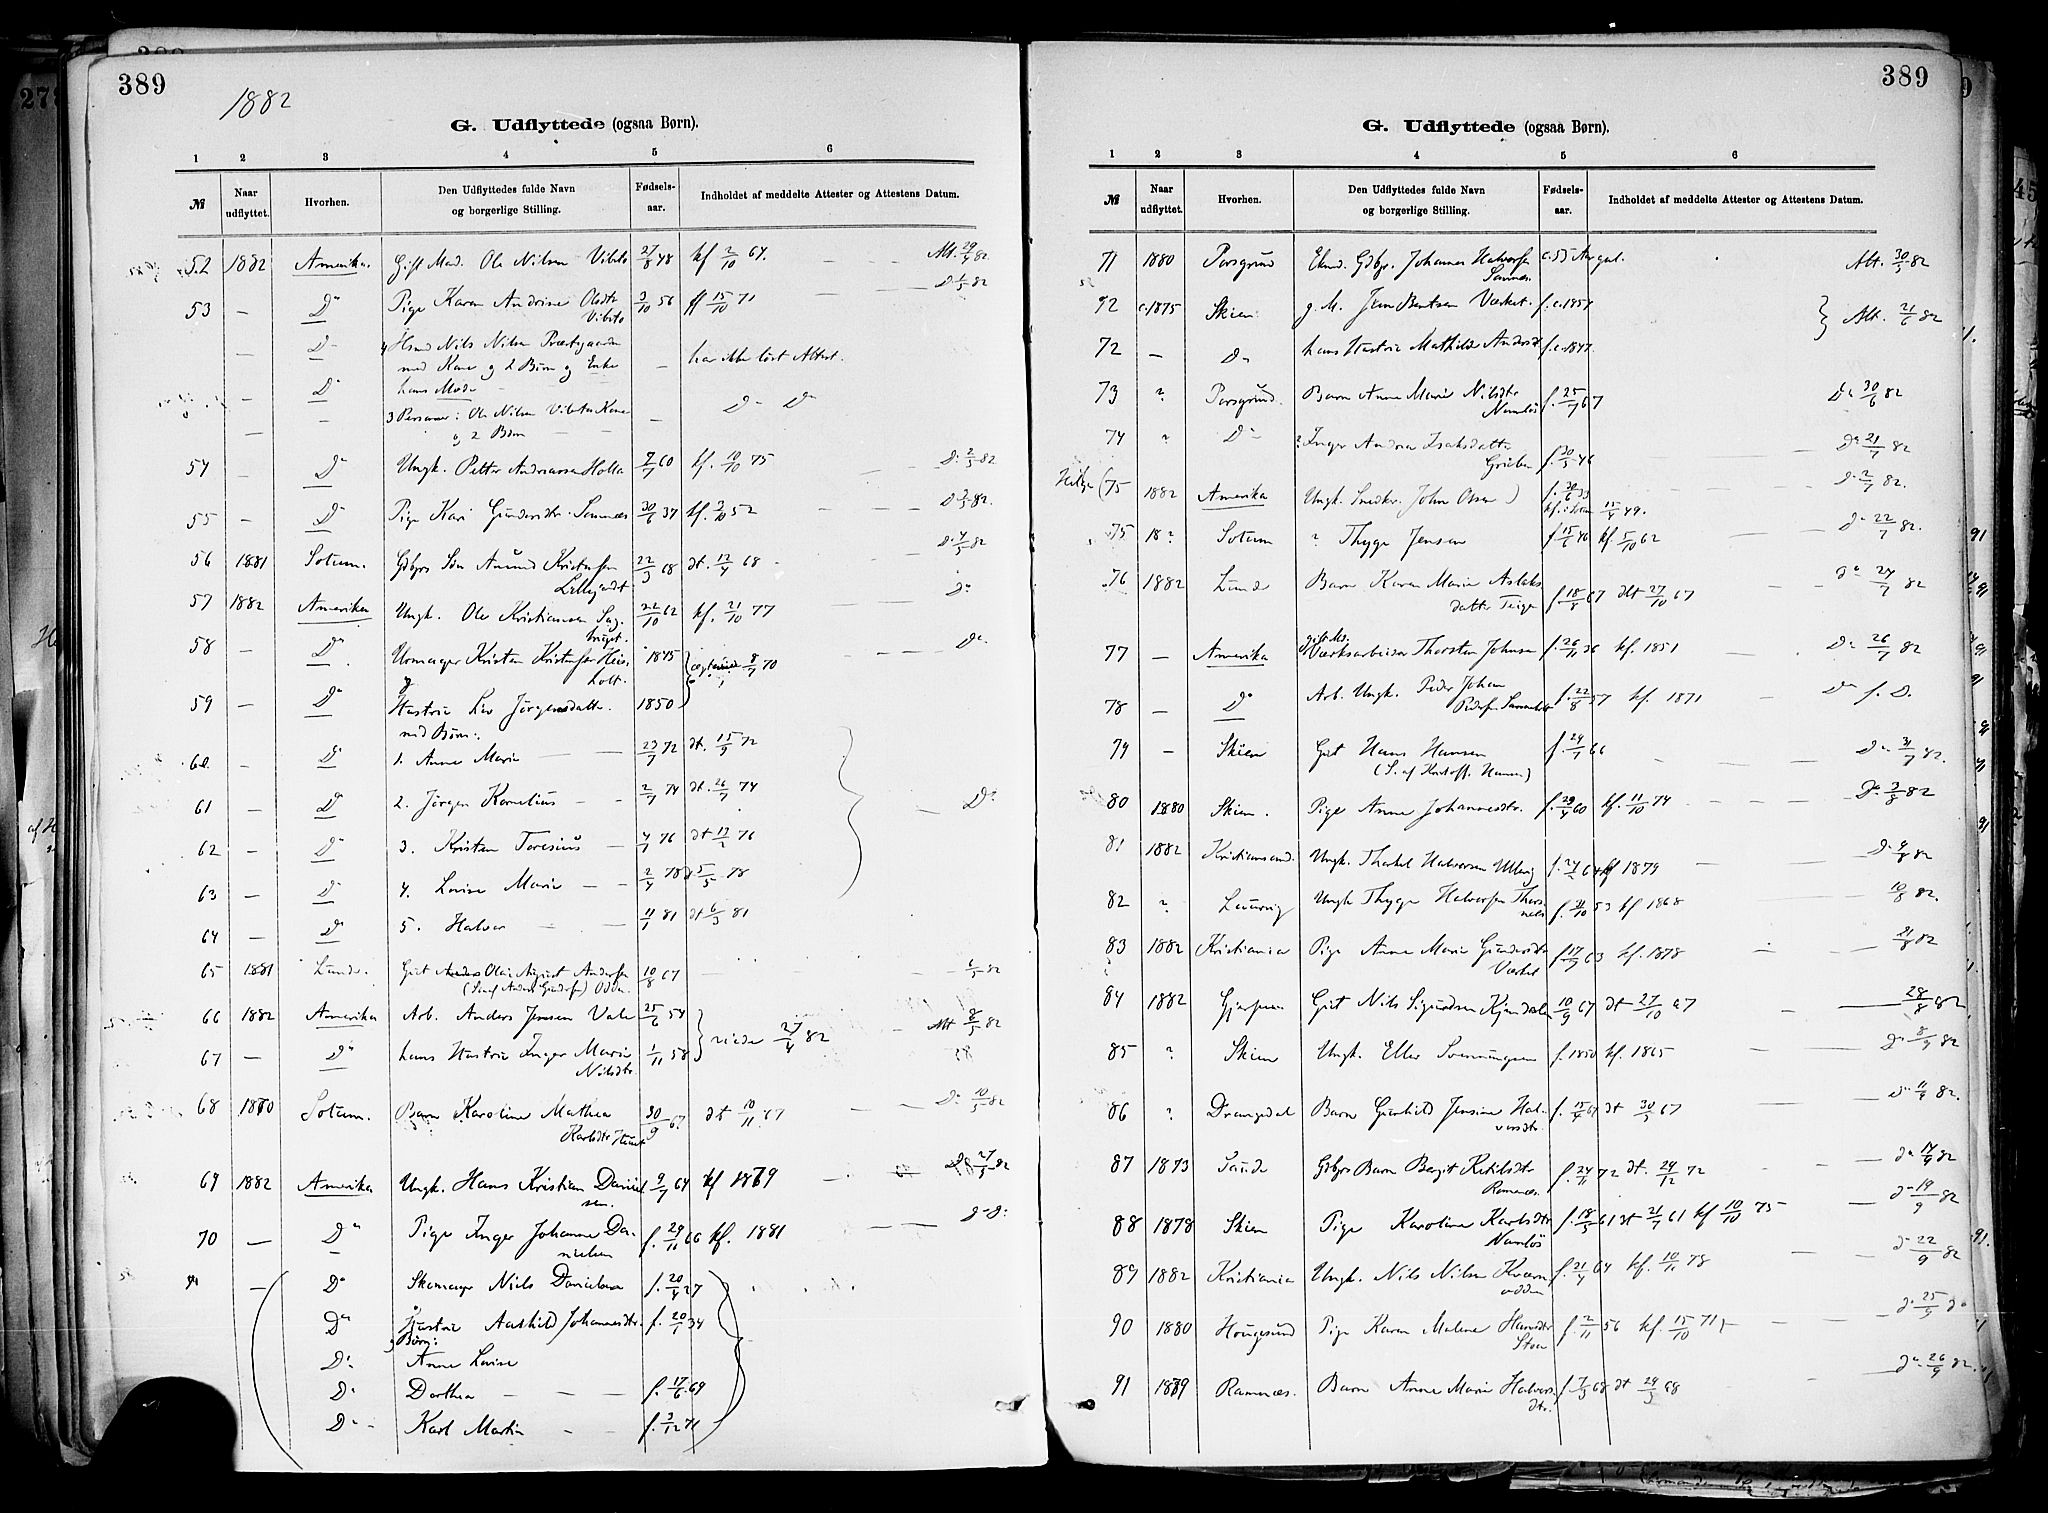 389
1882
G. Udflyttede (ogsaa Børn).
1 2 3 4 5 6
№ Naar udflyttet. Hvorhen. Den Udflyttedes fulde Navn og borgerlige Stilling. Fødsels-aar. Indholdet af meddelte Attester og Attestens Datum.
52 1882 Amerika. Gift Mand. Ole Nilsen Vibeto 27/8 48 kf 2/10 64. — Att. 29/4 82
53 — Do Pige Karen Andrine Olsdtr Vibeto 3/10 56 kf 15/10 71 — —
— Do Nils Nilsen Præstgaarden
med Kone og 2 Børn og Enke — har ikke løst Attest.
— Do hans Moder
— 3 Personer: Ole Nilsen Vibetos Kone — Do Do
og 2 Børn
54 — Do Ungk. Petter Andreassen Holla 7/7 60 kf. 10/10 75 — Do 2/5 82
55 — Do Pige Kari Gundersdtr. Sannæs 30/6 37 kf. 3/10 52 — Do 3/5 82.
56 1881 Solum. Gdbrs Søn Amund Kristofersen 22/3 68 dt. 12/4 68 — Do 4/5 82
57 1882 Amerika Ungk. Ole Kristiansen Sagbruget. 22/10 62 kf. 21/10 77 — do
58 — Do Urmager Kristen Kristofer Heisholt. 1845 8/7 70 Do.
og
59 — Do Hustru Liv Jørgensdatter 1850
med Børn:
60. — Do 1. Anne Marie — 23/7 72 dt. 15/9 72
61 — Do 2. Jørgen Kornelius — 2/7 74 dt. 26/7 74 — Do
62 — Do 3. Kristen Toresius — 4/1 76 dt 13/2 76
63 — Do 4. Lovise Marie — 2/4 78 dt 5/5 78
64 — Do 5. Halvor — 11/1 81 dt 6/3 81
65 1881 Lunde. Gut Olai August Andersen 10/8 67 — 6/5 82
66 1882 Amerika Arb. Anders Jensen Vale 25/6 54 viede 27/4 82 — Att 8/5 82
67 — Do hans Hustru Inger Marie Nilsdtr. 1/11 58
68 1870 Solum. Barn Karoline Mathea Karlsdtr 30/9 67 dt 10/11 67 — Do 10/5 82
69 1882 Amerika Ungk. Hans Kristian Danielsen. 9/7 64 kf 1879 Do 27/5 82
70 — Do Pige Inger Johanne Danielsen f. 29/11 66 kf. 1881 — Do Do
— Do Skomager Niels Danielsen f. 20/4 27
Do Hustru Aashild Johannesdtr. f. 20/1 34
3 Børn:
Do Anne Lovise
Do Dorthea — f. 17/6 69
Do Karl Martin — f. 3/12 71
389
G. Udflyttede (ogsaa Børn).
1 2 3 4 5 6
№ Naar udflyttet. Hvorhen. Den Udflyttedes fulde Navn og borgerlige Stilling. Fødsels-aar. Indholdet af meddelte Attester og Attestens Datum.
71 1880 Porsgrund Gdbr. Johannes Halvorsen Sannæs. c. 55 Aar gml. Att. 30/5 82
92 c. 1875 Skien g. M. Jens Bentsen Værket. f. c. 1851 Att. 21/6 82
72 — Do hans Hustru Mathilde Andersdtr f. c. 1847.
73 ? Porsgrund. Barn Anne Marie Nilsdtr Namløs f. 25/7 67 Do 30/6 82
74 ? Do ? Inger Andrea Isaksdatter f. 30/5 46 Do 21/7 82
(75 1882 Amerika Ungk. Snedker. John Olsen) f. 30/6 33 kf. 15/4 49. Do 2/7 82.
75 18? Solum ? Thyge Jensen f. 15/6 46 kf 5/10 62 — Do 22/7 82.
76 1882 Lunde Barn Karen Marie Aslaksdatter Teige f. 18/8 67 dt 27/10 67 — do 24/7 82
77 — Amerika gift M. Værksarbeider Thorsten Johnsen f. 26/11 36 kf. 1851 — Do 26/7 82
78 — Do Arb. Ungk. Peder Johan Pedersen f. 22/8 57 kf. 1871 — Do s. D.
79 — Skien Gut Hans Hansen f. 29/7 66 Do 31/7 82.
(S. af Kristoff. Hansen)
80 1880 Skien. Pige Anne Johannesdtr. f. 29/4 60 kf. 11/10 74 — Do 3/8 82
81 1882 Kristiansand. Ungk. Thorkel Halvorsen f. 24/2 64 kf 1879 — Do 9/8 82
82 ? Laurvig Ungk Thyge Halvorsen f. 31/10 53 kf 1868 10/8 82.
83 1882 Kristiania Pige Anne Marie Gundersdtr Værket f. 17/9 63 kf. 1878 — 21/8 82
84 1882 Gjerpen Gut Nils Sigurdsen Kjendalen 10/9 67 dt 27/10 67 — 28/8 82
85 ? Skien Ungk. Ellev Svenningsen f. 1850 kf. 1865 — Do 8/9 82
86 ? Drangedal Barn Gunhild Jensine Halvorsdtr f. 15/4 67 dt 30/5 67 — Do 11/9 82.
87 1873 Saude Gdbrs Barn Bergit Ketilsdtr Romnæs. f. 24/11 72 dt. 29/12 72 — do 14/9 82
88 1878 Skien Pige Karoline Karlsdtr Namløs f. 18/5 61 dt 21/7 61 kf 10/10 75 — do 19/9 82
89 1882 Kristiania Ungk. Nils Nilsen Kværnodden f. 21/4 64 kf. 10/11 78 — do 22/9 82
90 1880 Hougesund Pige Karen Malene Hansdtr f. 2/11 56 kf. 15/10 71 — do 25/9 do
91 1879 Ramnæs. Barn Anne Marie Halvorsdtr. f. 7/3 68 dt 29/3 68 — do 26/9 82.